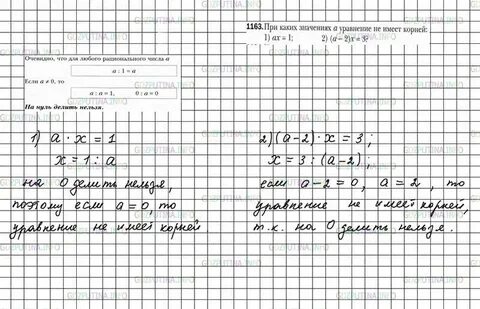 1163. При каких значениях a уравнение не имеет корней:
1) ax = 1; 2) (a – 2)x = 3?
Очевидно, что для любого рационального числа a
a : 1 = a
Если a ≠ 0, то
a : a = 1, 0 : a = 0
На нуль делить нельзя.
1) a · x = 1
x = 1 : a
на 0 делить нельзя,
поэтому если a = 0, то
уравнение не имеет корней
2) (a-2) · x = 3 ;
x = 3 : (a-2) ;
если a-2 = 0, a = 2, то
уравнение не имеет корней,
т.к. на 0 делить нельзя.
GDZPUTINA.INFO